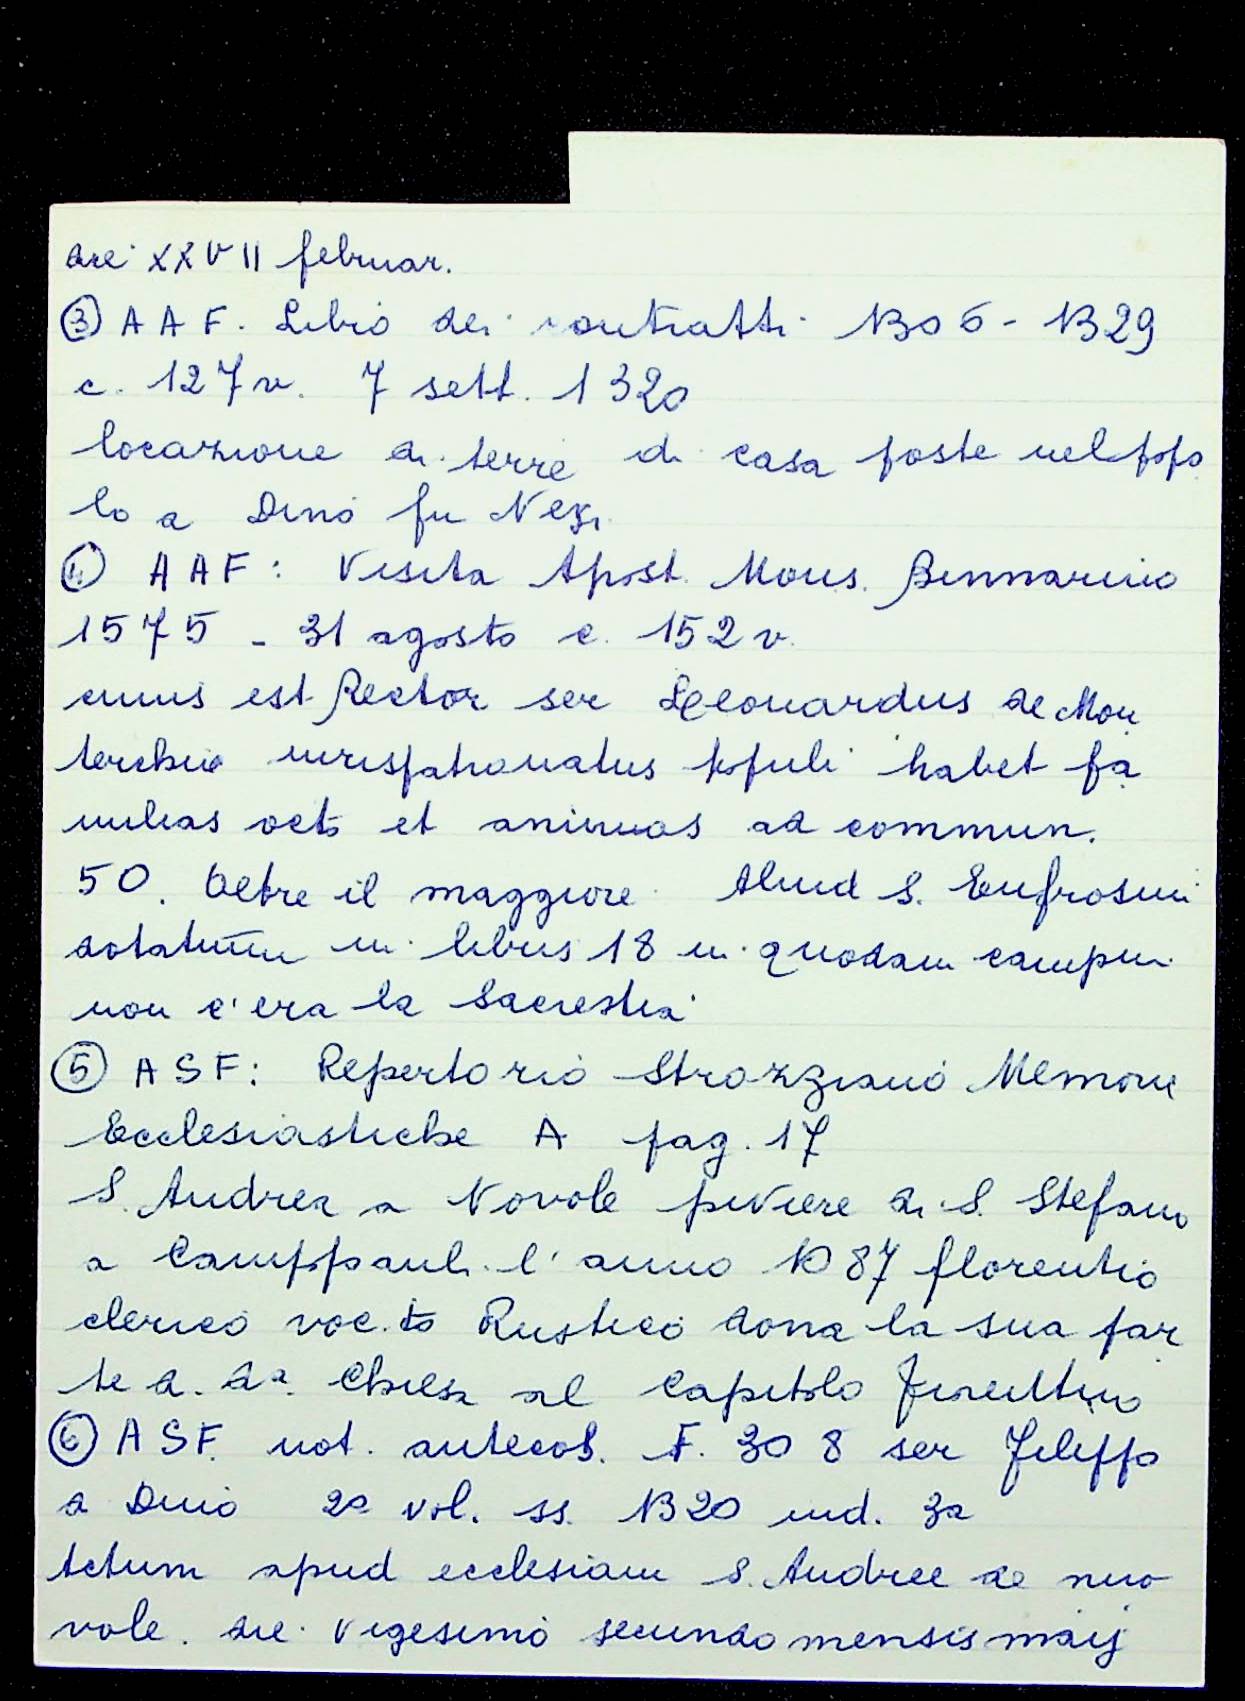 die XXVII februar.
③ AAF. Libro dei contratti 1306-1329
c. 127v. 7 sett. 1320
locazione di terre di casa poste nel popo
lo a Dino fu Nezi
④ AAF: Visita Apost. Mons. Binnarino
1575 - 31 agosto c. 152v.
cuius est Rector ser Leonardus de Mon
terchio iurispatronatus populi habet fa
milias octo et animas ad commun.
50. Oltre il maggiore Aliud S. Eufrosini
dotatum in libris 18 in quodam campin.
non c'era la Sacrestia
⑤ ASF: Repertorio Strozziano Memorie
Ecclesiastiche A pag. 17
S. Andrea a Novole piviere di S. Stefano
a Camppauli l'anno 1087 florentio
clerico voc.to Rustico dona la sua par
te d. da. Chiesa al Capitolo fiorentino
⑥ ASF. not. antecos. F. 308 ser Filippo
a Dino 2o vol. ss. 1320 ind. 3a
Actum apud ecclesiam S. Andree de nuo
vole. die vigesimo secundo mensis maij